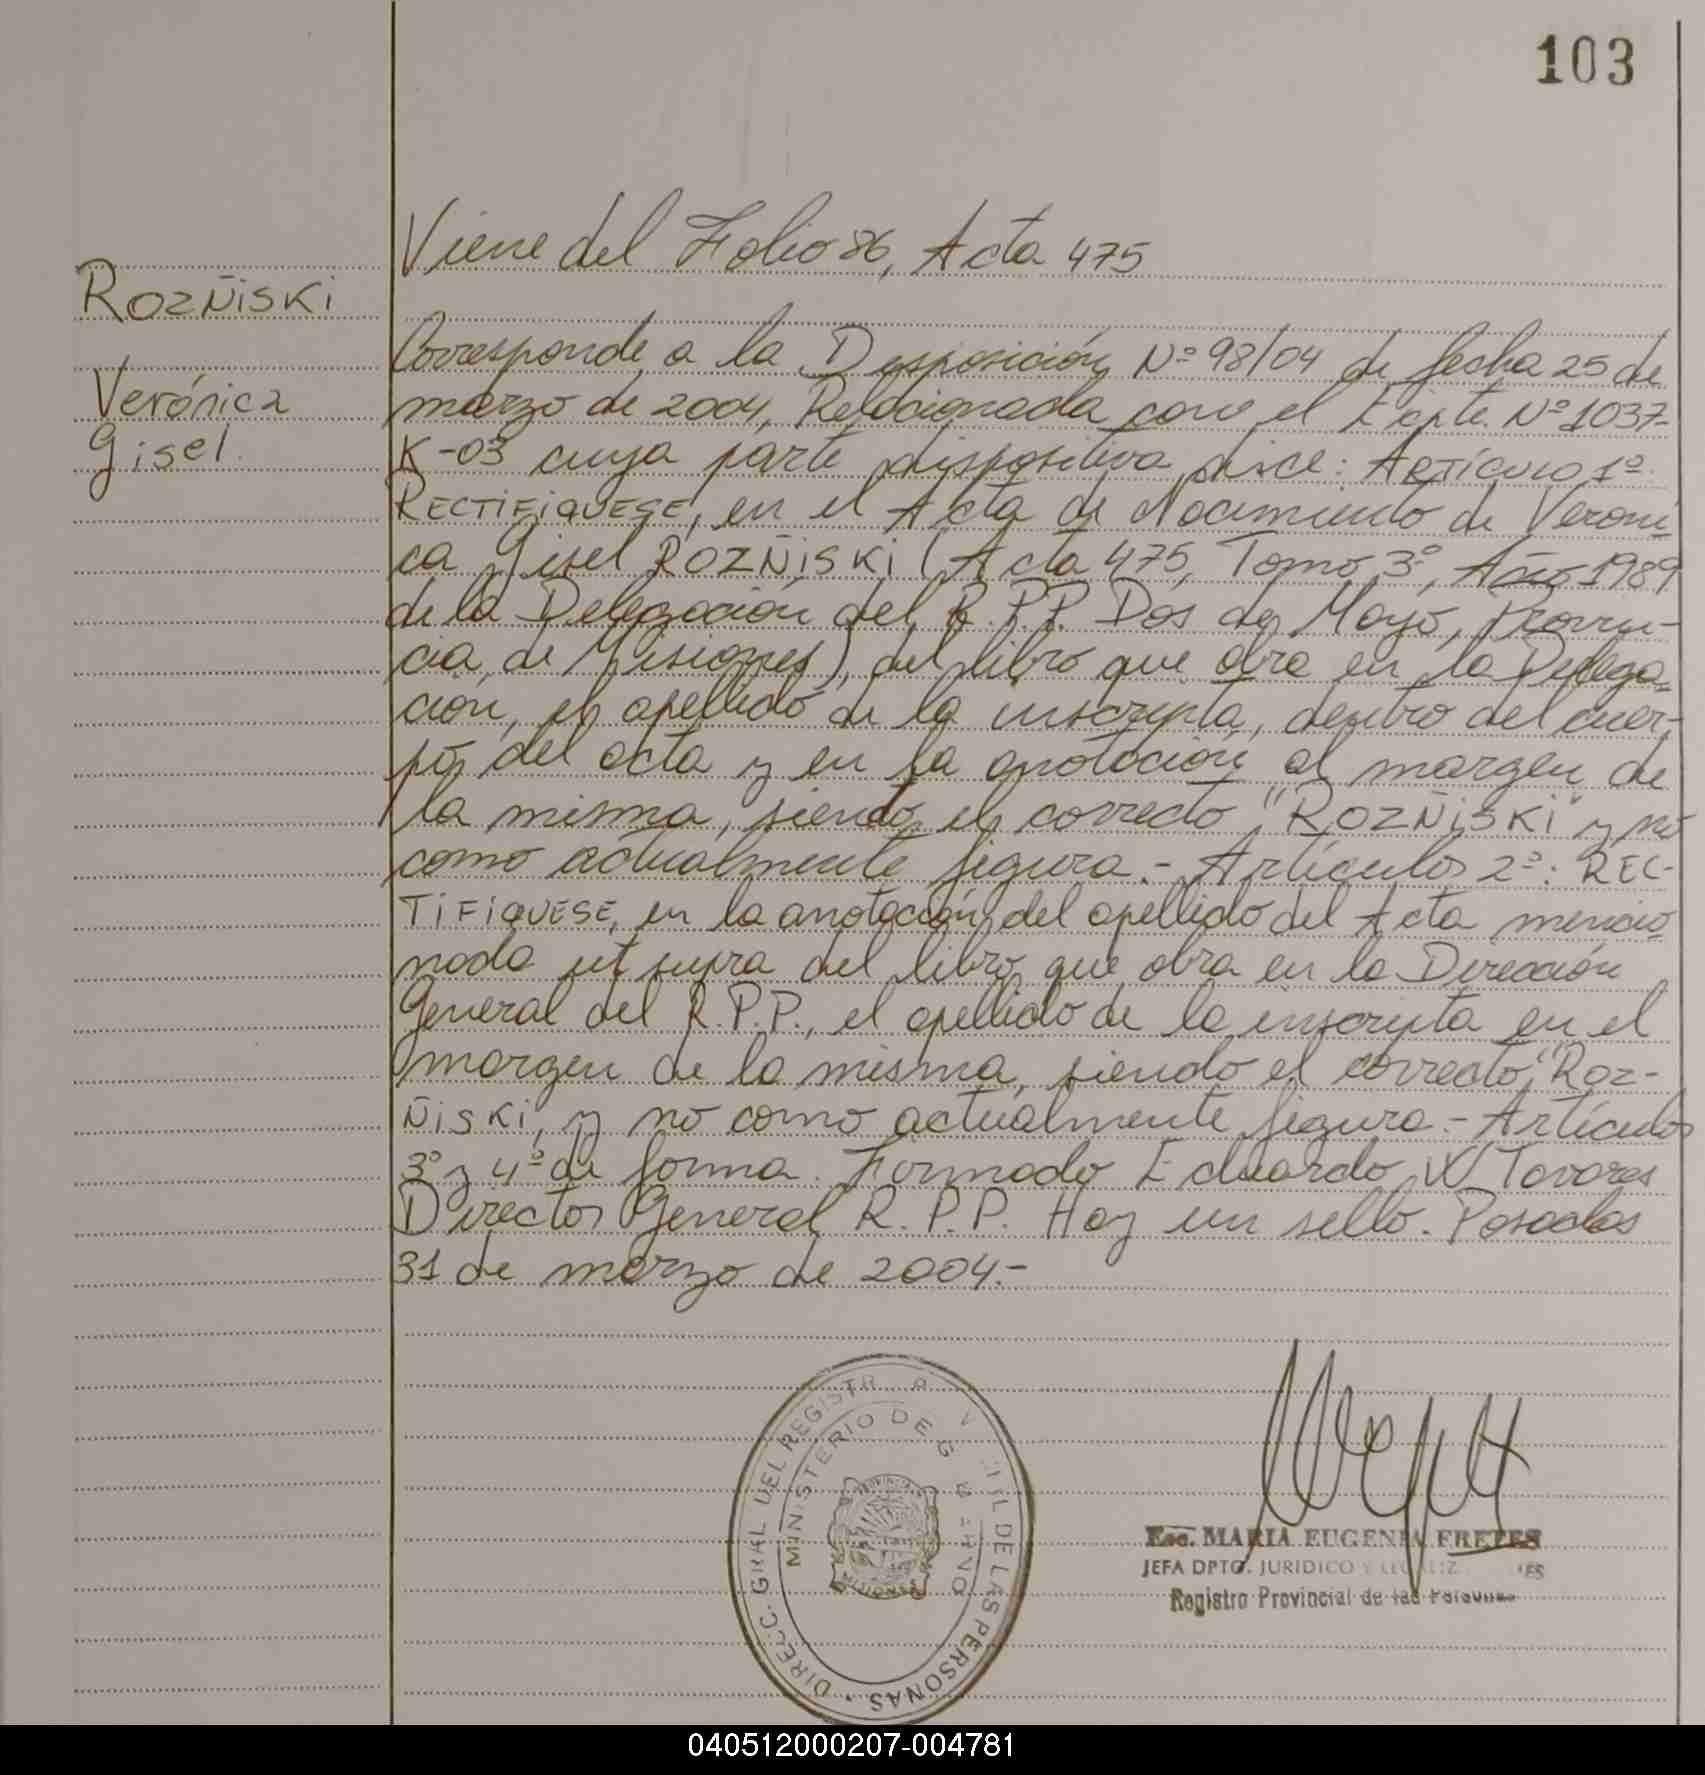 103
Viene del Folio 86, Acta 475
ROZÑISKI
Verónica
Gisel.
Corresponde a la Disposición Nº 98/04 de fecha 25 de
marzo de 2004, Relacionada con el Expte. Nº 1037-
K-03 cuya parte dispositiva dice: ARTÍCULO 1º
RECTIFIQUESE, en el Acta de Nacimiento de Veróni-
ca Gisel ROZÑISKI (Acta 475, Tomo 3º, Año 1989
de la Delegación del R.P.P. Dos de Mayo, Provin-
cia de Misiones), del libro que obra en la Delega-
ción, el apellido de la inscripta, dentro del cuer-
po del acta y en la anotación al margen de
la misma, siendo el correcto "ROZÑISKI" y no
como actualmente figura.- Artículos 2º: REC-
TIFIQUESE, en la anotación del apellido del Acta mencio-
nada ut supra del libro que obra en la Dirección
General del R.P.P., el apellido de la inscripta en el
margen de la misma, siendo el correcto, "ROZ-
ÑISKI, y no como actualmente figura.- Artículos
3º y 4º de forma. Firmado Eduardo W Tavares
Director General R.P.P. Hay un sello. Posadas
31 de marzo de 2004.-
DIRECC. GRAL DEL REGISTR DE LAS PERSONAS
MINISTERIO DE
PROVINCIA
DE MISIONES
Esc. MARIA EUGENIA FRETES
JEFA DPTO. JURIDICO Y
Registro Provincial de las Personas
040512000207-004781